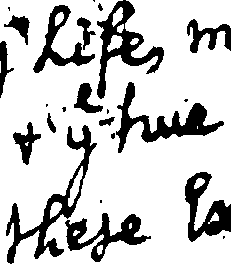 Life, m
+ yᵉ true
these